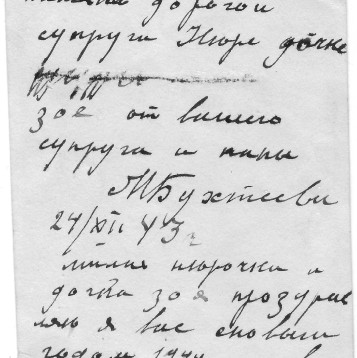 дорогой
супруги Нюре дочке
зое от вашего
супруга и папы
МБухтееви
24/XII 43 г
милая нюрочка и
дочка зоя прозудрав
ляю я вас сновым
годом 1944